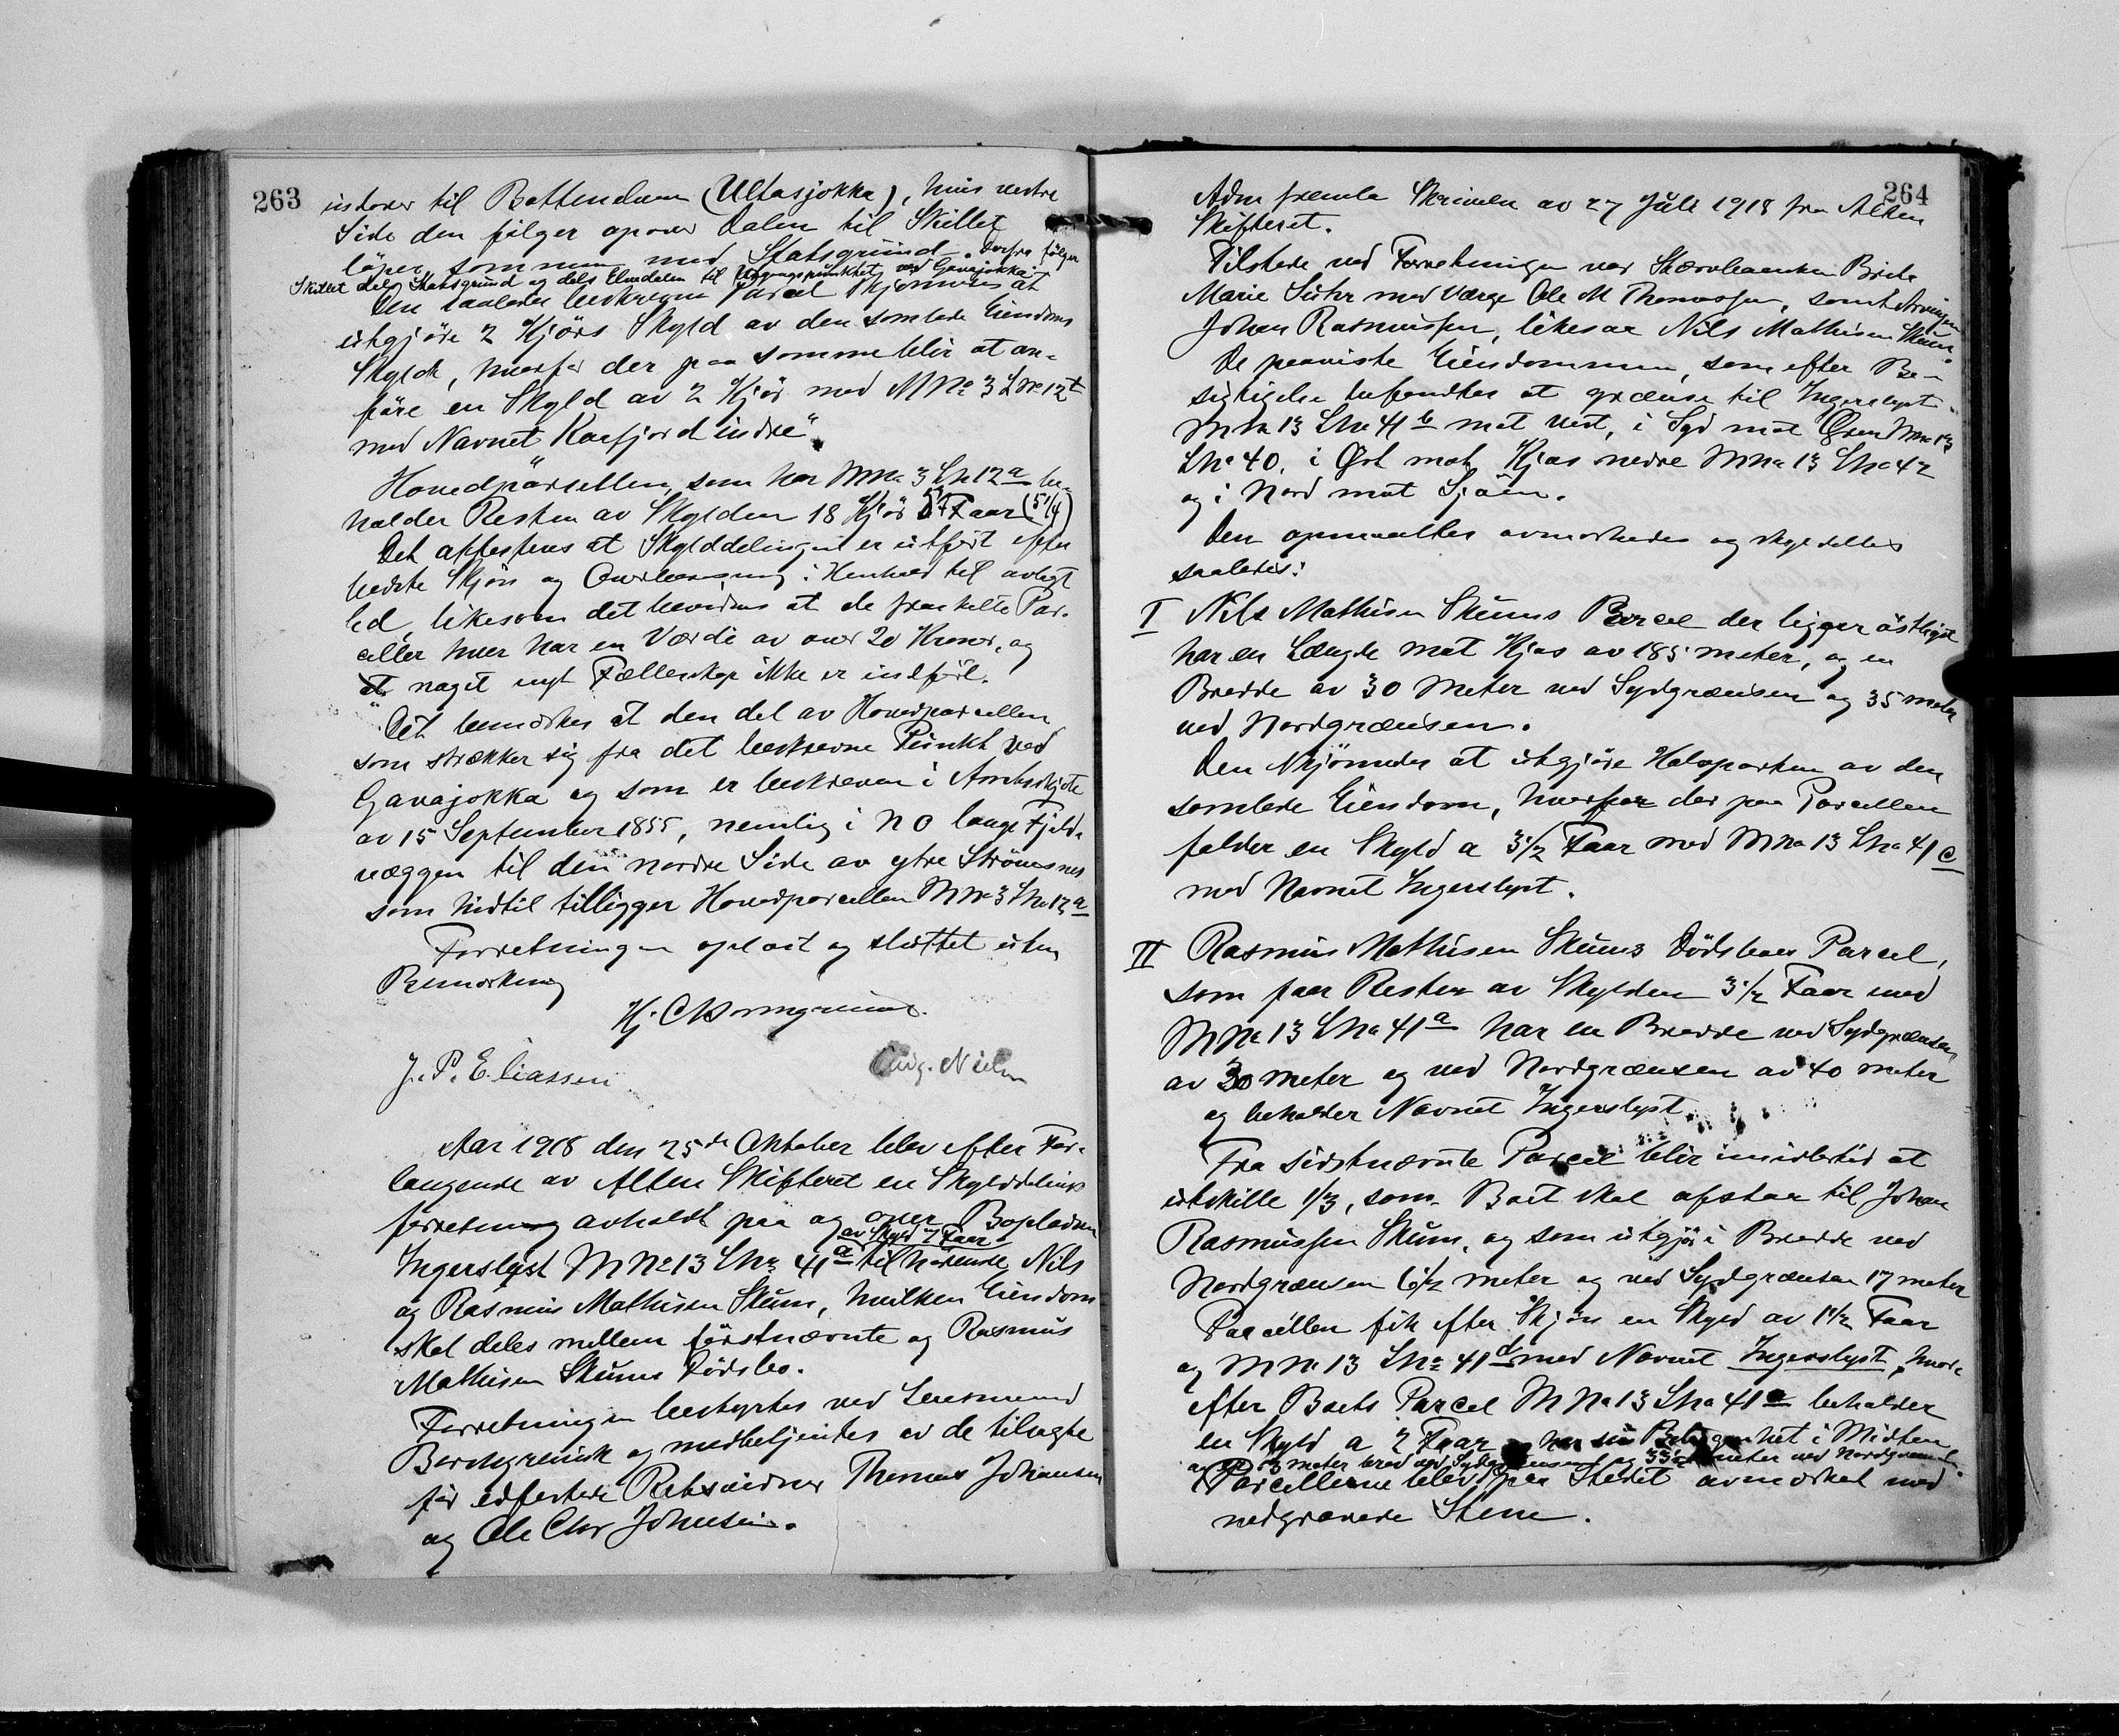 263
indover til Battendvæn (Ultasjokka), hvis vestre
Side den følger opover Dalen til Skillet
løper sammen med Statsgrund. Derfra følger
Skillet dels Statsgrund og dels Elvedalen til Utgangspunktet ved Gavajokka
Den saaledes beskrevne Parcel skjønnes at
utgjøre 2 Kjørs Skyld av den samlede Eiendoms
Skyld, hvorfor der paa samme blir at an-
føre en Skyld av 2 Kjør med M No 3 L No 12 t
med Navnet Kaafjord indre".
Hovedparsellen, som har M No 3 L No 12 a be-
holder Resten av Skylden 18 Kjør 5 Faar (5/4)
Det attesteres at Skylddelingen er utført efter
bedste Skjøn og Overbevisning i Henhold til avlagt
Ed, likesom det bevidnes at de fraskilte Par-
celler hver har en Værdi av over 20 Kroner, og
at noget nyt Fællesskap ikke er indført.
Det bemerkes at den del av Hovedparcellen
som strækker sig fra det beskrevne Punkt ved
Gavajokka og som er beskreven i Amtsskjøte
av 15 September 1855, nemlig i NO langs Fjeld-
væggen til den nordre Side av ytre Strømsnes
som hidtil tilligger Hovedparcellen M No 3 L No 12 a
Forretningen oplæst og sluttet uten
Bemerkning
Hj. C Borchgrevink.
J. P. Eliassen
Aug. Nielsen
Aar 1918 den 25de Oktober blev efter For-
langende av Alten Skifteret en Skylddelings
forretning avholdt paa og over Bopladsen
av Skyld 7 Faar
Ingerslyst M No 13 L No 41 a tilhørende Nils
og Rasmus Mathisen Skum, hvilken Eiendom
skal deles mellem førstnævnte og Rasmus
Mathisen Skums Dødsbo.
Forretningen bestyrtes ved Lensmand
Borchgrevink og medbetjentes av de tilsagte
før edfæstede Retsvidner Thomas Johansen
og Ole Chr Johnsen.
264
Adm fremla Skrivelse av 27 Juli 1918 fra Alten
Skifteret.
Tilstede ved Forretningen var Skævlænken Brita
Marie Suhr med Værge Ole M Thomassen, samt Arvingen
Johan Rasmussen, likesaa Nils Mathisen Skum.
De paaviste Eiendommen, som efter Be-
sigtigelse befandtes at grænse til Ingerslyst
M No 13 L No 41 b mot Vest, i Syd mot Øren M No 13
L No 40, i Øst mot Kjøs nedre M No 13 L No 42
og i Nord mot Sjøen.
Den opmaaltes avmerkedes og skylddeltes
saaledes:
I Nils Mathisen Skums Parcel der ligger østligst
har en Længde mot Kjøs av 185 meter, og en
Bredde av 30 Meter ved Sydgrænsen og 35 meter
ved Nordgrænsen.
Den skjønnedes at utgjøre Halvparten av den
samlede Eiendom, hvorfor der paa Parcellen
falder en Skyld a 3 1/2 Faar med M No 13 L No 41 c
med Navnet Ingerslyst.
II Rasmus Mathisen Skums Dødsboes Parcel,
som faar Resten av Skylden 3 1/2 Faar med
M No 13 L No 41 a har en Bredde ved Sydgrænsen
av 30 meter og ved Nordgrænsen av 40 meter
og beholder Navnet Ingerslyst
Fra sidstnævnte Parcel blir imidlertid at
utskille 1/3, som Boet skal afstaa til Johan
Rasmussen Skum, og som utgjør i Bredde ved
Nordgrænsen 6 1/2 meter og ved Sydgrænsen 17 meter
Parcellen fik efter Skjøn en Skyld av 1 1/2 Faar
og M No 13 L No 41 d med Navnet Ingerslyst, hvor-
efter Boets Parcel M No 13 L No 41 a beholder
en Skyld a 2 Faar har sin Beliggenhet i Midten
og 13 meter bred ved Sydgrænsen og 33 1/2 meter ved Nordgrænsen.
Parcellerne blev paa Stedet avmerket med
nedgravede Stene.